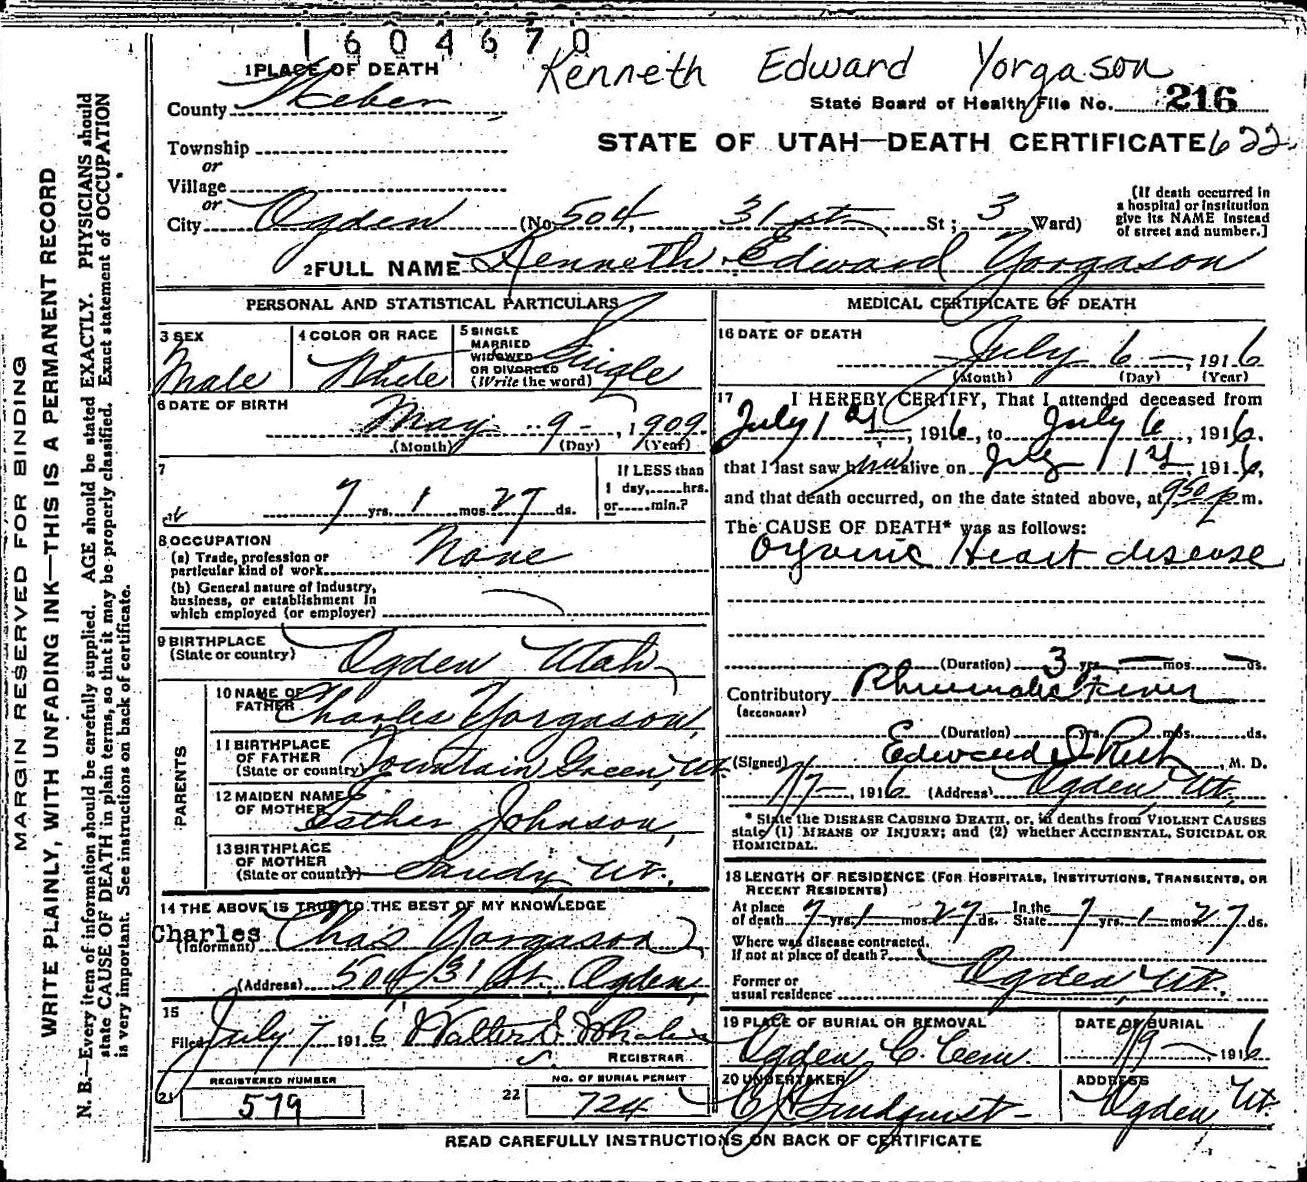 1604670
Kenneth Edward Yorgason
1 PLACE OF DEATH
County Weber
State Board of Health File No. 216
STATE OF UTAH—DEATH CERTIFICATE 622
Township
or
Village
or
City Ogden (No. 504, 31st St; 3 Ward)
(If death occurred in
a hospital or institution
give its NAME instead
of street and number.]
2 FULL NAME Kenneth Edward Yorgason
PERSONAL AND STATISTICAL PARTICULARS
3 SEX
Male
4 COLOR OR RACE
White
5 SINGLE
MARRIED
WIDOWED
OR DIVORCED
(Write the word)
Single
6 DATE OF BIRTH
May 9-, 1909.
(Month) (Day) (Year)
7
7 yrs. 1 mos. 27 ds.
If LESS than
1 day,......hrs.
or......min.?
8 OCCUPATION
(a) Trade, profession or
particular kind of work
None
(b) General nature of industry,
business, or establishment in
which employed (or employer)
9 BIRTHPLACE
(State or country)
Ogden Utah
PARENTS
10 NAME OF
FATHER
Charles Yorgason,
11 BIRTHPLACE
OF FATHER
(State or country)
Fountain Green, Ut.
12 MAIDEN NAME
OF MOTHER
Esther Johnson,
13 BIRTHPLACE
OF MOTHER
(State or country)
Sandy Ut.
14 THE ABOVE IS TRUE TO THE BEST OF MY KNOWLEDGE
Charles
(Informant) Chas Yorgason
(Address) 504 31 St. Ogden,
15
Filed July 7 1916 Walter
REGISTRAR
REGISTERED NUMBER
21 579
NO. OF BURIAL PERMIT
22 724
MEDICAL CERTIFICATE OF DEATH
16 DATE OF DEATH
July 6 —, 1916
(Month) (Day) (Year)
17 I HEREBY CERTIFY, That I attended deceased from
July 1st, 1916, to July 6, 1916.
that I last saw him alive on July 1st, 1916,
and that death occurred, on the date stated above, at 9:50 p m.
The CAUSE OF DEATH* was as follows:
Organic Heart disease
(Duration) 3 yrs. — mos. — ds.
Contributory Rheumatic Fever
(SECONDARY)
(Duration) yrs. mos. ds.
(Signed) Edward I Rich, M. D.
7/7—, 1916 (Address) Ogden, Ut.
* State the DISEASE CAUSING DEATH, or, in deaths from VIOLENT CAUSES
state (1) MEANS OF INJURY; and (2) whether ACCIDENTAL, SUICIDAL OR
HOMICIDAL.
18 LENGTH OF RESIDENCE (FOR HOSPITALS, INSTITUTIONS, TRANSIENTS, OR
RECENT RESIDENTS)
At place
of death 7 yrs. 1 mos. 27 ds. In the
State 7 yrs. 1 mos. 27 ds.
Where was disease contracted,
If not at place of death?
Former or
usual residence
Ogden, Ut.
19 PLACE OF BURIAL OR REMOVAL
Ogden C. Cem.
DATE OF BURIAL
7/9— 1916
20 UNDERTAKER
Lindquist-
ADDRESS
Ogden Ut.
READ CAREFULLY INSTRUCTIONS ON BACK OF CERTIFICATE
MARGIN RESERVED FOR BINDING
WRITE PLAINLY, WITH UNFADING INK—THIS IS A PERMANENT RECORD
N. B.—Every item of information should be carefully supplied. AGE should be stated EXACTLY. PHYSICIANS should
state CAUSE OF DEATH in plain terms, so that it may be properly classified. Exact statement of OCCUPATION
is very important. See instructions on back of certificate.